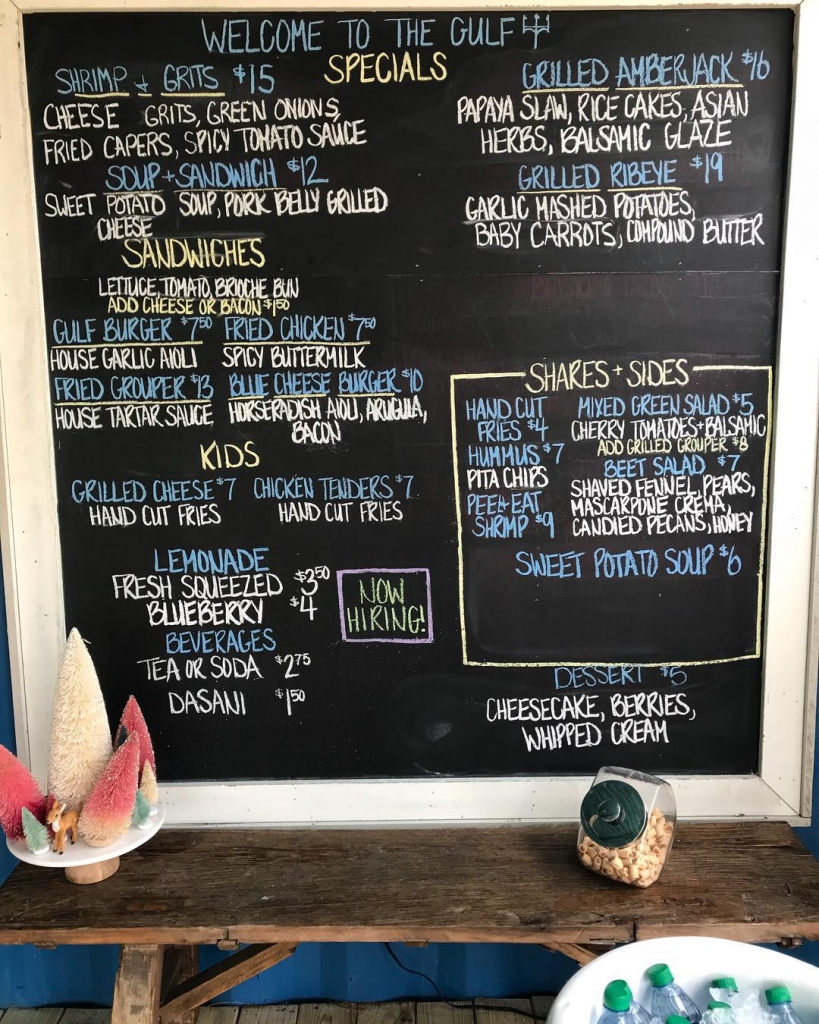 WELCOME TO THE GULF
SPECIALS
SHRIMP + GRITS $15
CHEESE GRITS, GREEN ONIONS,
FRIED CAPERS, SPICY TOMATO SAUCE
SOUP + SANDWICH $12
SWEET POTATO SOUP, PORK BELLY GRILLED
CHEESE
GRILLED AMBERJACK $16
PAPAYA SLAW, RICE CAKES, ASIAN
HERBS, BALSAMIC GLAZE
GRILLED RIBEYE $19
GARLIC MASHED POTATOES,
BABY CARROTS, COMPOUND BUTTER
SANDWICHES
LETTUCE, TOMATO, BRIOCHE BUN
ADD CHEESE OR BACON $1.50
GULF BURGER $7.50 FRIED CHICKEN $7.50
HOUSE GARLIC AIOLI SPICY BUTTERMILK
FRIED GROUPER $13 BLUE CHEESE BURGER $10
HOUSE TARTAR SAUCE HORSERADISH AIOLI, ARUGULA,
BACON
KIDS
GRILLED CHEESE $7 CHICKEN TENDERS $7
HAND CUT FRIES HAND CUT FRIES
LEMONADE
FRESH SQUEEZED $3.50
BLUEBERRY $4
BEVERAGES
TEA OR SODA $2.75
DASANI $1.50
NOW
HIRING!
SHARES + SIDES
HAND CUT
FRIES $4
HUMMUS $7
PITA CHIPS
PEEL + EAT
SHRIMP $9
MIXED GREEN SALAD $5
CHERRY TOMATOES + BALSAMIC
ADD GRILLED GROUPER $8
BEET SALAD $7
SHAVED FENNEL, PEARS,
MASCARPONE CREMA,
CANDIED PECANS, HONEY
SWEET POTATO SOUP $6
DESSERT $5
CHEESECAKE, BERRIES,
WHIPPED CREAM